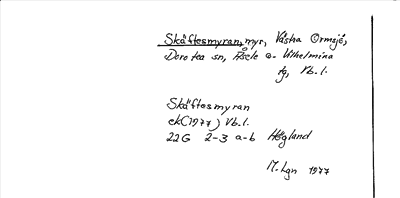 Skäftesmyran, myr, Västra Ormsjö,
Dorotea sn, Åsele o. Vilhelmina
tg, Vb.l.
Skäftesmyran
ek(1977) Vb.l.
22G 2-3 a-b Högland
M. Lgn 1977